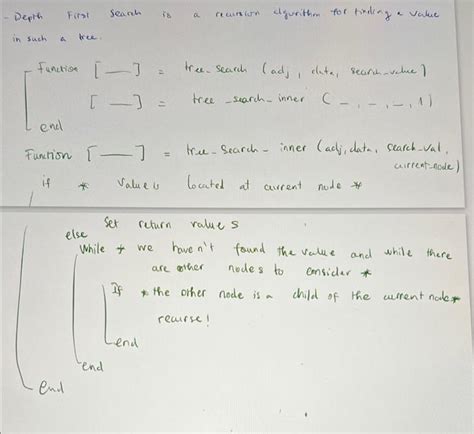 - Depth First Search is a recursion algorithm for finding a value
in such a tree.
Function [ — ] = tree_search (adj, data, search_value)
[ — ] = tree_search_inner ( –, –, –, 1)
end
Function [ — ] = tree_search_inner (adj, data, search_val,
current_node)
if * value is located at current node *
Set return values
else
while * we haven't found the value and while there
are other nodes to consider *
If * the other node is a child of the current node *
recurse!
end
end
end